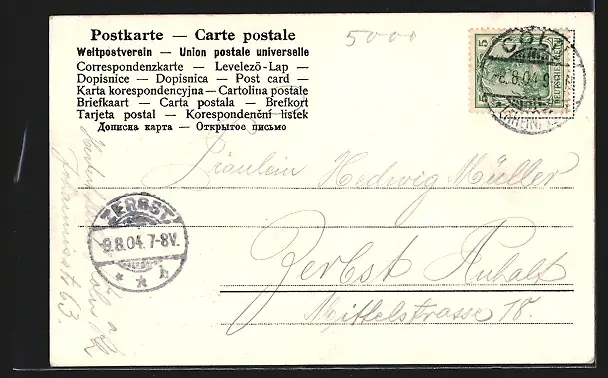 Postkarte — Carte postale
Weltpostverein — Union postale universelle
Correspondenzkarte — Levelező-Lap —
Dopisnice — Dopisnica — Post card —
Karta korespondencyjna — Cartolina postale
Briefkaart — Carta postala — Brefkort
Tarjeta postal — Korespondenční lístek
Дописна карта — Открытое письмо
5000
5 5
DEUTSCHES REICH
CÖLN
8.8.04.9
(RHEIN)
Fräulein Hedwig Müller
Zerbst Anhalt
Mittelstrasse 18.
ZERBST
9.8.04.7-8V.
* * h
Cöln a/R
Johannisstr 63.